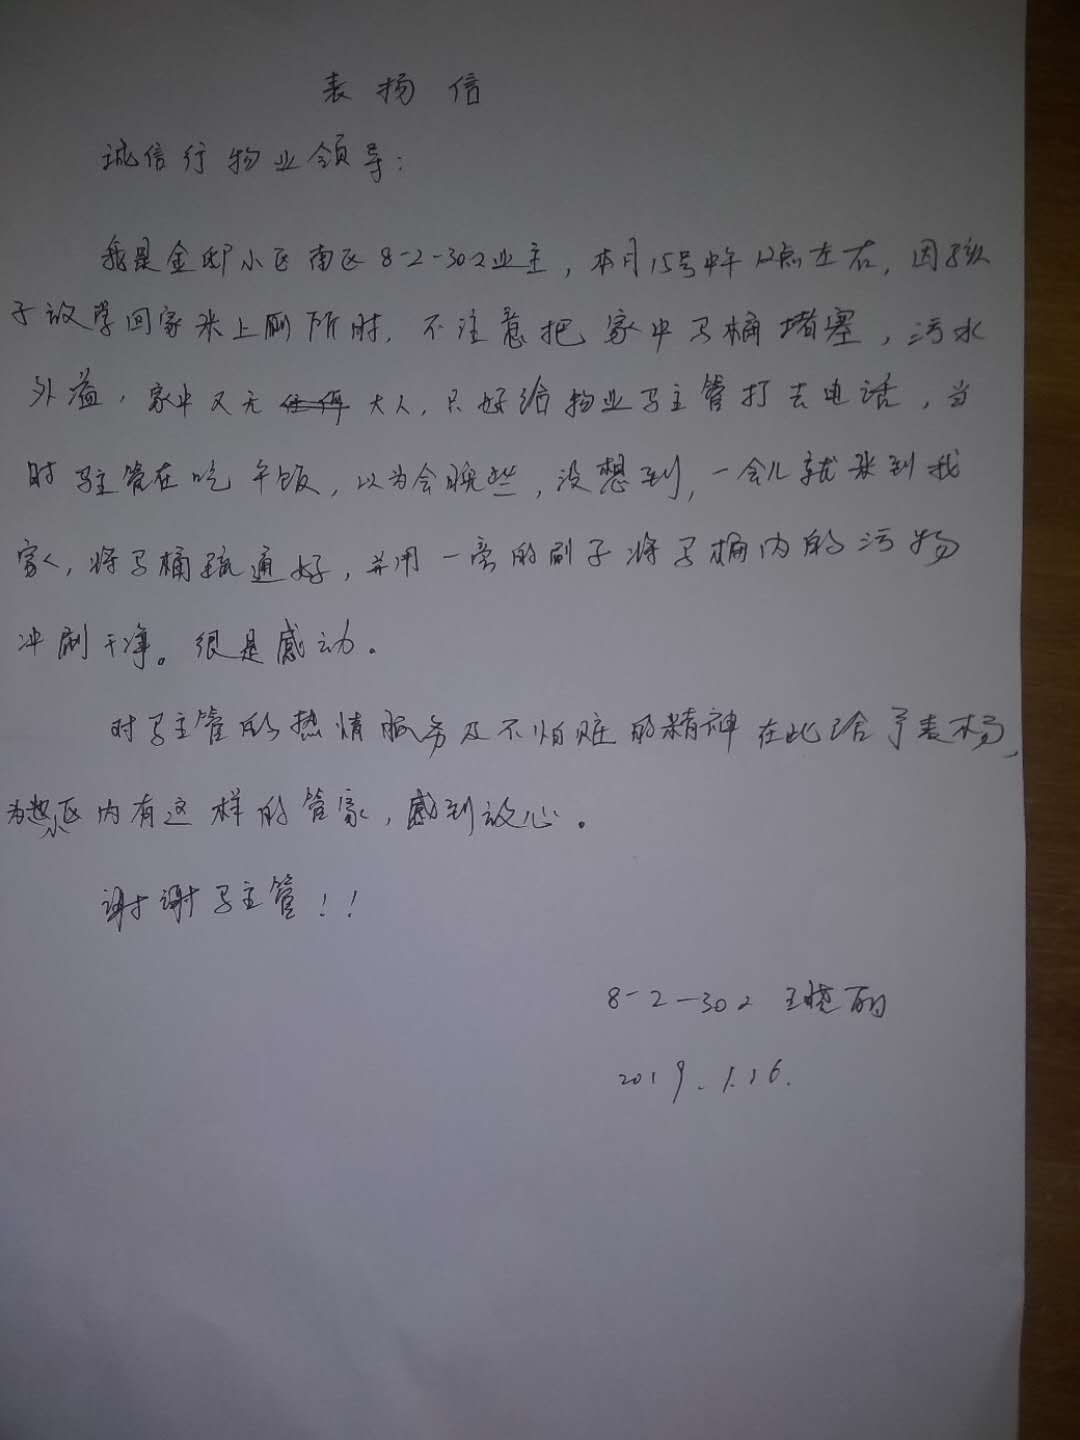 表扬信
诚信行物业领导:
我是金邸小区南区8-2-302业主,本月15号中午12点左右,因孩
子放学回家来上厕所时,不注意把家中马桶堵塞,污水
外溢,家中又无大人,只好给物业马主管打去电话,当
时马主管在吃午饭,以为会晚些,没想到,一会儿就来到我
家,将马桶疏通好,并用一旁的刷子将马桶内的污物
冲刷干净。很是感动。
对马主管的热情服务及不怕脏的精神在此给予表扬,
为小区内有这样的管家,感到放心。
谢谢马主管!!
8-2-302 王晓丽
2019.1.16.